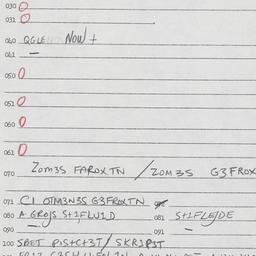 030 0
031 0
040 QGLE Now +
041 –
050 0
051 0
060 0
061 0
070 Zom3S FAROXTN / ZOM3S G3FROX
071 CI OTM3N3S G3FROXTN
080 A GROJS S+1FLU1D 081 S+1FLEJDE
090 – 091 –
100 SBET PIS+C+3T / SKRIPST